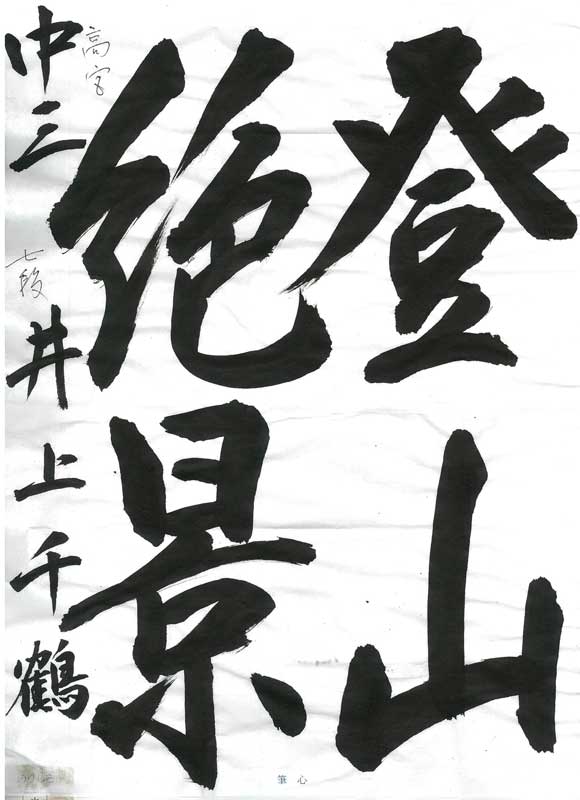 登山
絶景
高宮
中三 七段 井上千鶴
筆心